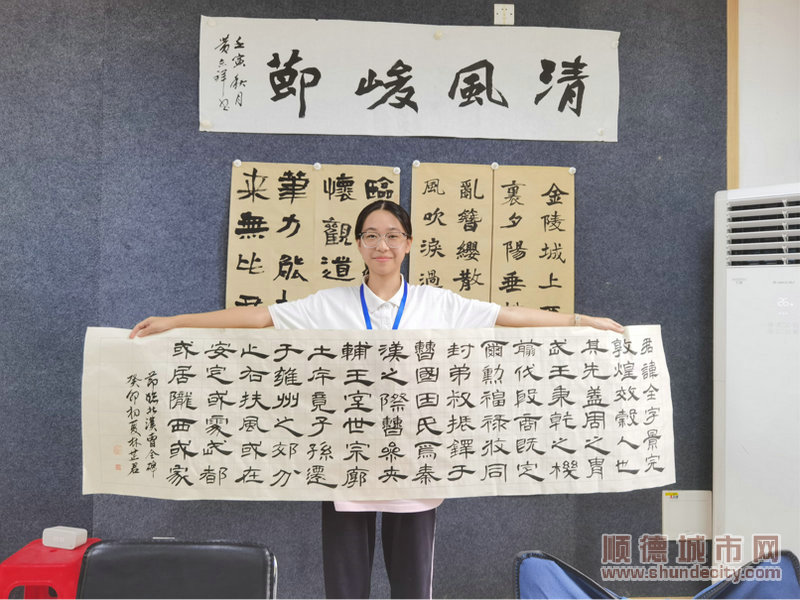 清風峻莭
壬寅秋月
金陵城上西
裏夕陽垂地
亂簪纓散
風吹淚過
臨
懷觀道
筆力能
来無比君
君諱全字景完
敦煌效穀人也
其先蓋周之胄
武王秉乾之機
翦伐殷商既定
爾勲福祿攸同
封弟叔振鐸于
曹國因氏焉秦
漢之際曹參夾
輔王室世宗廓
土斥竟子孫遷
于雍州之郊分
止右扶風或在
安定或處武都
或居隴西或家
節臨漢曹全碑
癸卯初夏林芷君
顺德城市网
www.shundecity.com